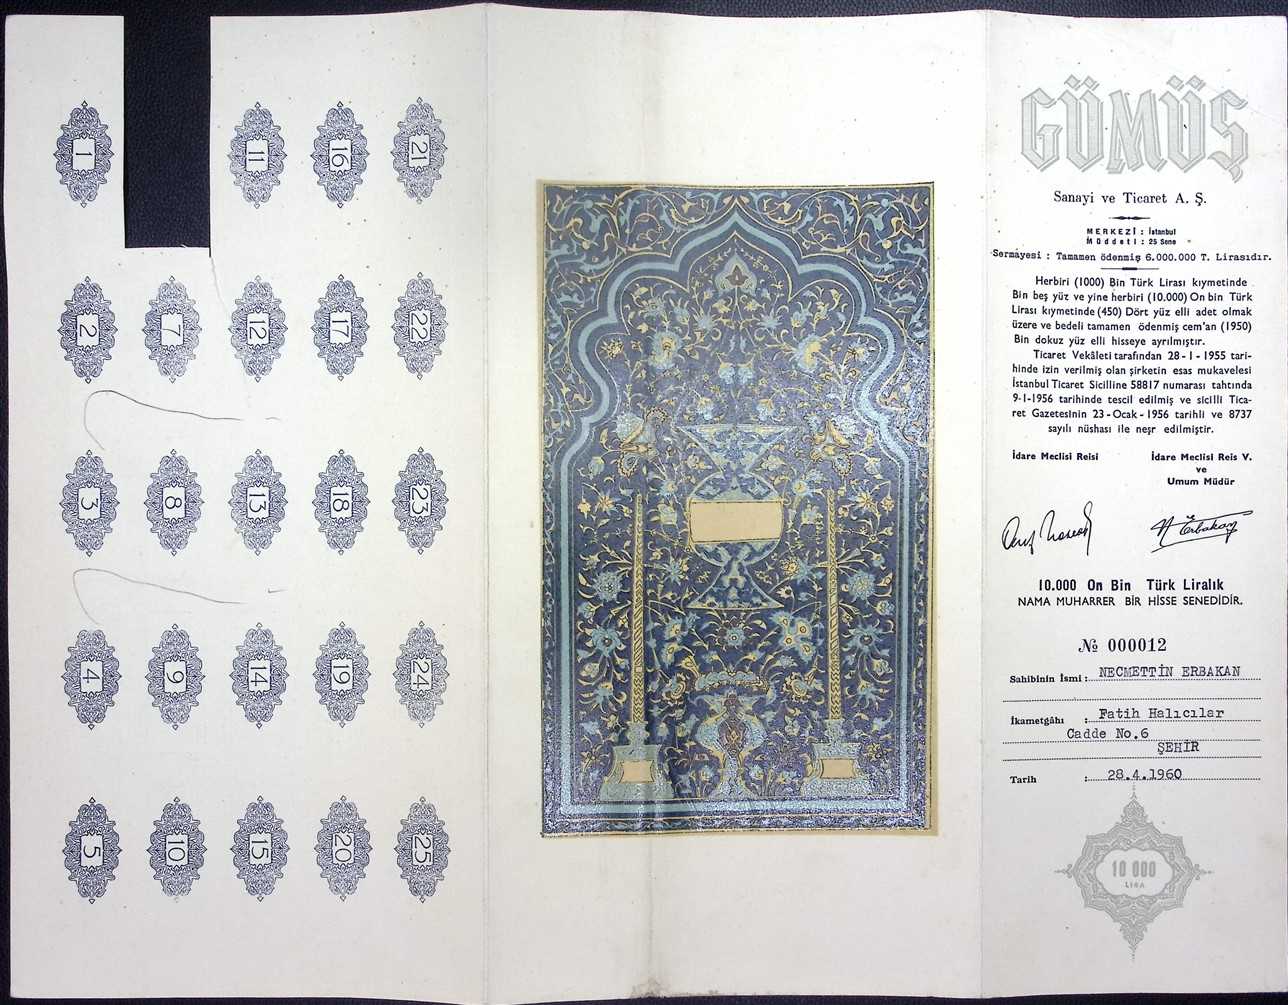 1
11
16
21
2
7
12
17
22
3
8
13
18
23
4
9
14
19
24
5
10
15
20
25
GÜMÜŞ
Sanayi ve Ticaret A. Ş.
MERKEZİ : İstanbul
Müddeti : 25 Sene
Sermayesi : Tamamen ödenmiş 6.000.000 T. Lirasıdır.
Herbiri (1000) Bin Türk Lirası kıymetinde
Bin beş yüz ve yine herbiri (10.000) On bin Türk
Lirası kıymetinde (450) Dört yüz elli adet olmak
üzere ve bedeli tamamen ödenmiş cem'an (1950)
Bin dokuz yüz elli hisseye ayrılmıştır.
Ticaret Vekâleti tarafından 28 - 1 - 1955 tari-
hinde izin verilmiş olan şirketin esas mukavelesi
İstanbul Ticaret Sicilline 58817 numarası tahtında
9-1-1956 tarihinde tescil edilmiş ve sicilli Tica-
ret Gazetesinin 23 - Ocak - 1956 tarihli ve 8737
sayılı nüshası ile neşr edilmiştir.
İdare Meclisi Reisi
İdare Meclisi Reis V.
ve
Umum Müdür
N Erbakan
10.000 On Bin Türk Liralık
NAMA MUHARRER BİR HİSSE SENEDİDİR.
№ 000012
Sahibinin İsmi : NECMETTİN ERBAKAN
İkametgâhı : Fatih Halıcılar
Cadde No.6
ŞEHİR
Tarih : 28.4.1960
10 000
LIRA